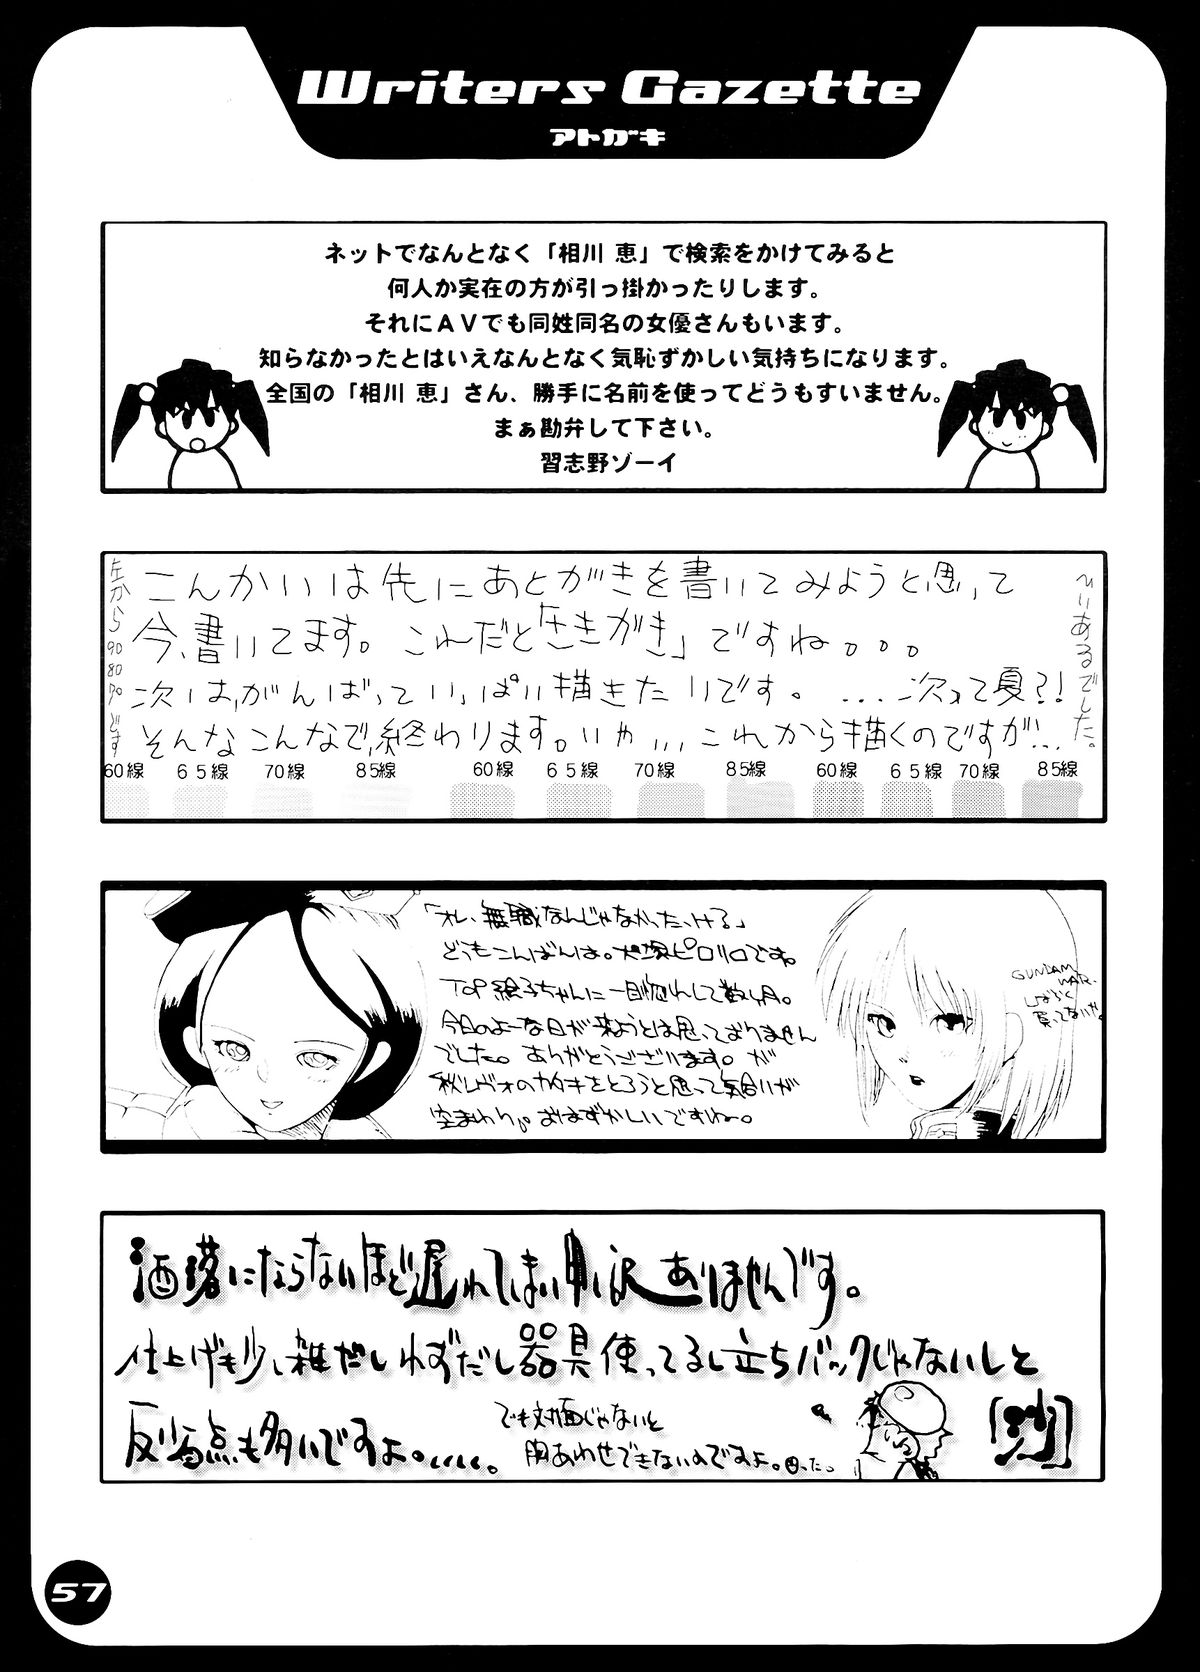 Writers Gazette
アトガキ
ネットでなんとなく「相川 恵」で検索をかけてみると
何人か実在の方が引っ掛かったりします。
それにＡＶでも同姓同名の女優さんもいます。
知らなかったとはいえなんとなく気恥ずかしい気持ちになります。
全国の「相川 恵」さん、勝手に名前を使ってどうもすいません。
まぁ勘弁して下さい。
習志野ゾーイ
こんかいは先にあとがきを書いてみようと思って
今、書いてます。これだと「さきがき」ですね。。。
次は、がんばっていっぱい描きたいです。...次って夏?!
そんなこんなで、終わります。いや...これから描くのですが...
ひぃあるでした。
左から90 80 70です
60線 65線 70線 85線 60線 65線 70線 85線 60線 65線 70線 85線
「オレ、無職なんじゃなかったっけ？」
どうもこんばんは。犬塚ピロリロです。
TOP絵子ちゃんに一目惚れして数ヶ月。
今日のよーな日が来ようとは思っておりません
でした。ありがとうございます。が
秋レヴォのカタキをとろうと思って気合いが
空まわり。おはずかしいですねー。
GUNDAM
WAR.
しばらく
買ってないや。
洒落にならないほど遅れてしまい申し訳ありませんです。
仕上げも少し雑だしわずだし器具使ってるし立ちバックじゃないしと
反省点も多いですよ。
でも対面じゃないと
胸あわせできないのですよ。
57